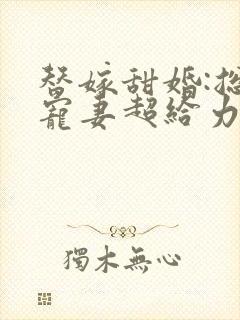 替嫁甜婚:总
寵妻超給力
獨木無心